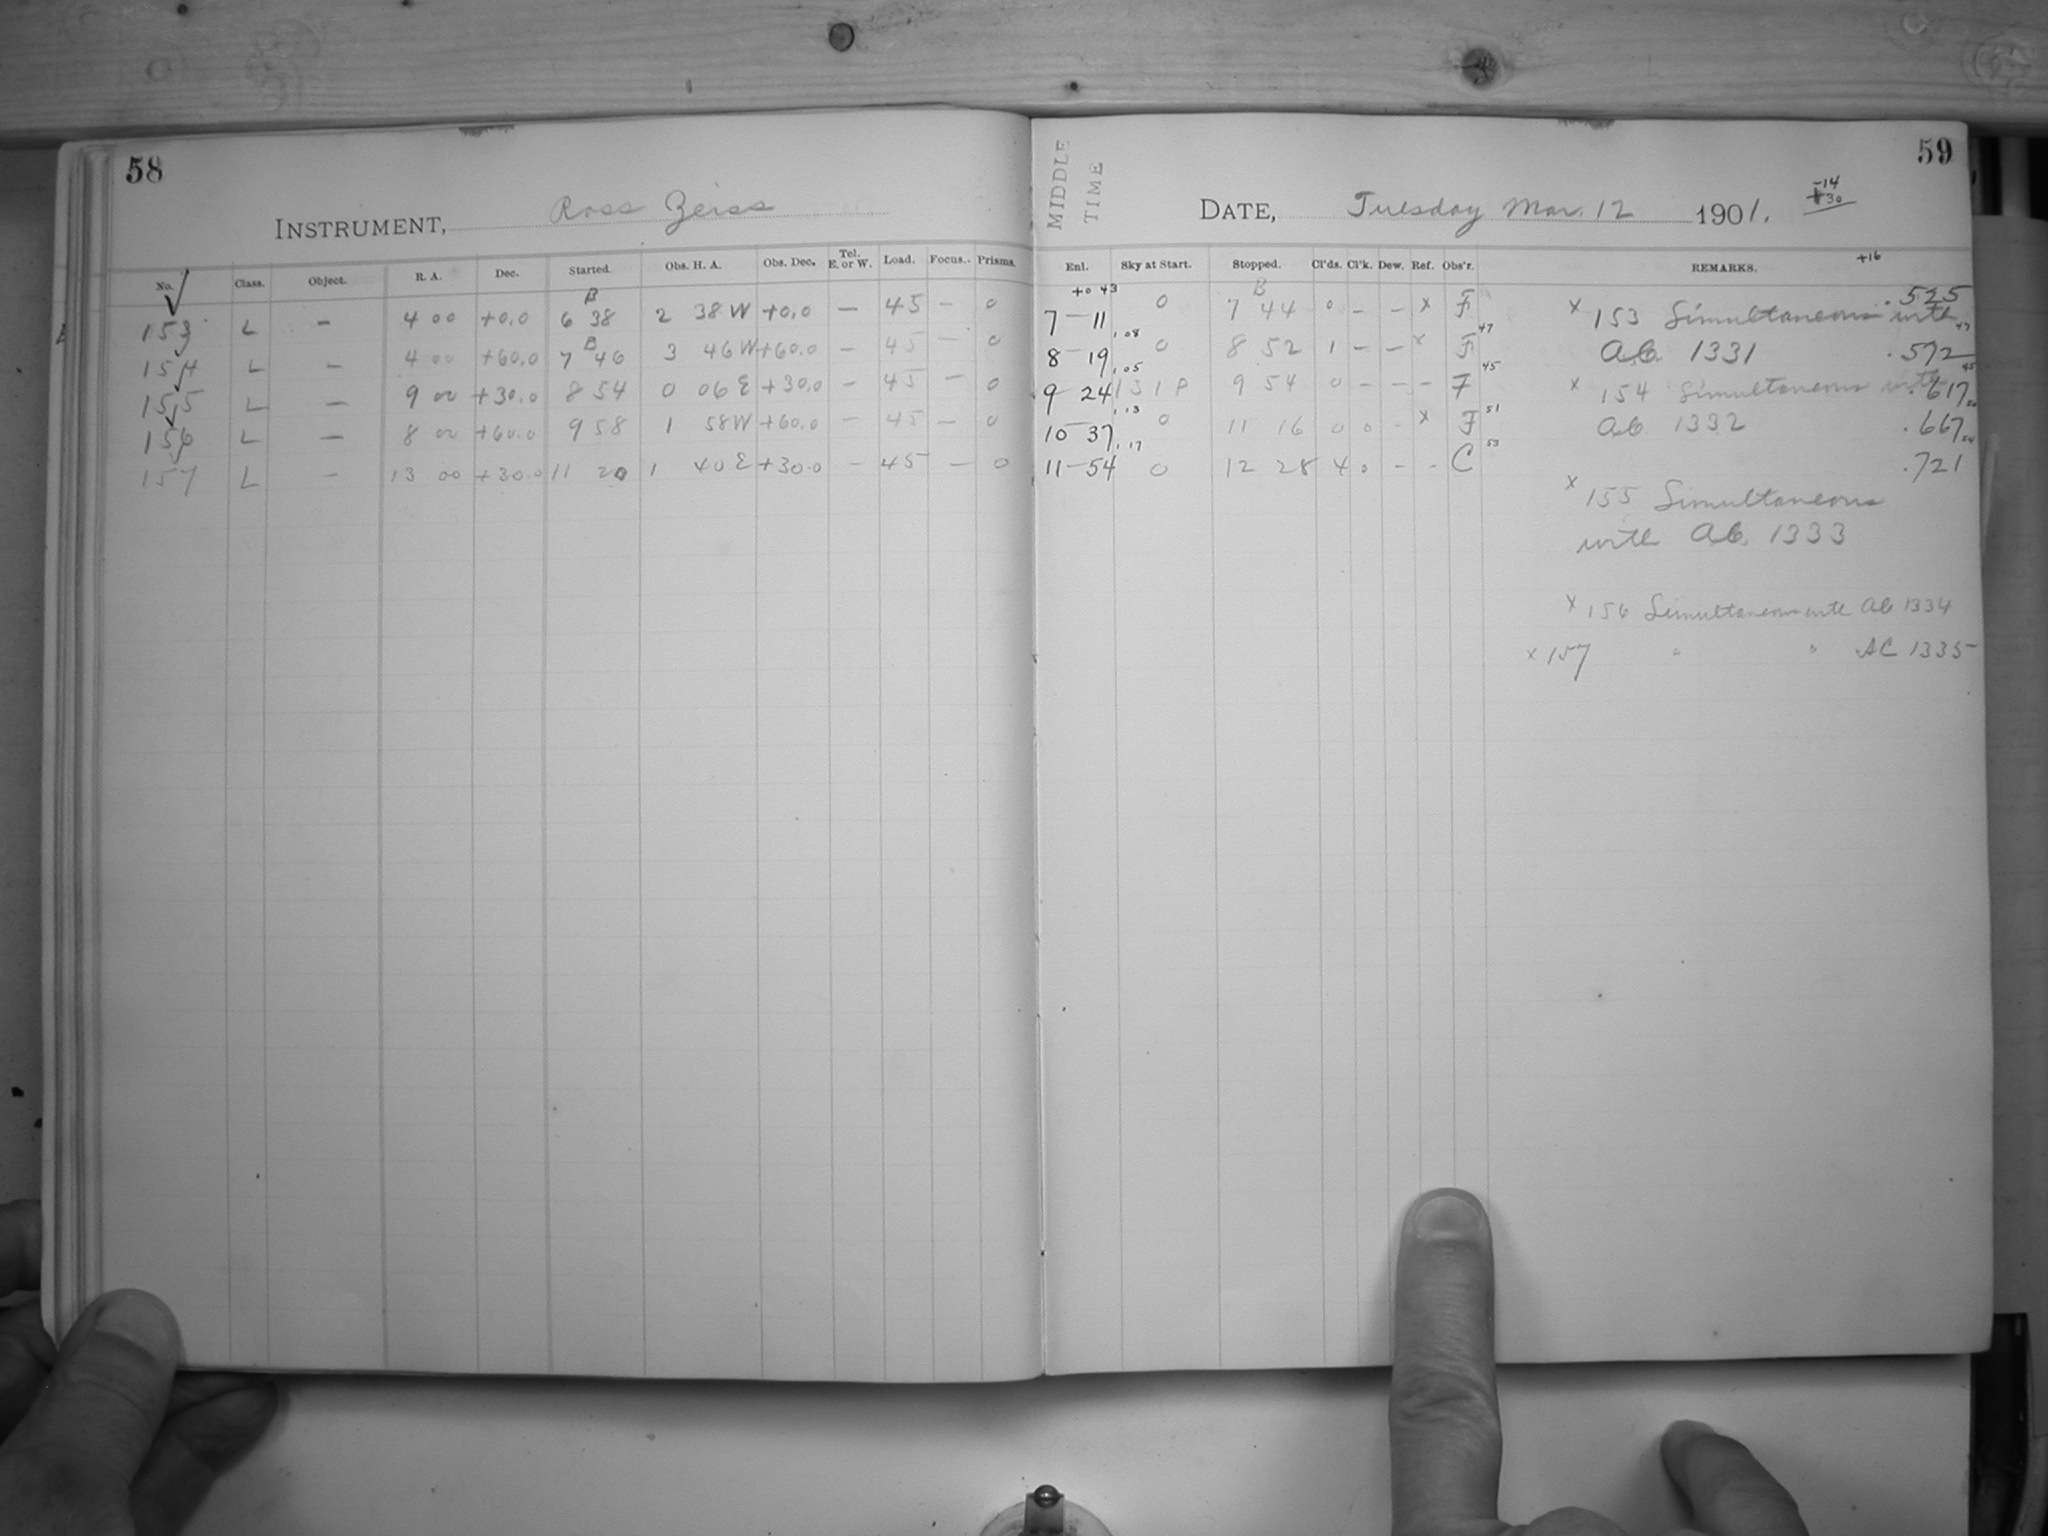 58
INSTRUMENT, Ross Zeiss
No. Class. Object. R. A. Dec. Started. Obs. H. A. Obs. Dec. Tel. E. or W. Load. Focus. Prisms.
153 L – 4 00 +0.0 B 6 38 2 38 W +0.0 – 45 – 0
154 L – 4 00 +60.0 B 7 46 3 46 W +60.0 – 45 – 0
155 L – 9 00 +30.0 8 54 0 06 E +30.0 – 45 – 0
156 L – 8 00 +60.0 9 58 1 58 W +60.0 – 45 – 0
157 L – 13 00 +30.0 11 20 1 40 E +30.0 – 45 – 0
59
MIDDLE
TIME
DATE, Tuesday Mar. 12 1901.
-14
+30
+16
Enl. Sky at Start. Stopped. Cl'ds. Cl'k. Dew. Ref. Obs'r. REMARKS.
+0 43
7 11 0 B 7 44 0 – – x F
8 19 .08 0 8 52 1 – – x F 47
9 24 .05 1 S 1 P 9 54 0 – – – F 45
10 37 .13 0 11 16 0 0 – x F 51
11 54 .17 0 12 28 4 0 – – C 53
x 153 Simultaneous with .525
AC 1331 .572 47
x 154 Simultaneous with .617 45
AC 1332 .667
.721
x 155 Simultaneous
with AC 1333
x 156 Simultaneous with AC 1334
x 157 " " AC 1335